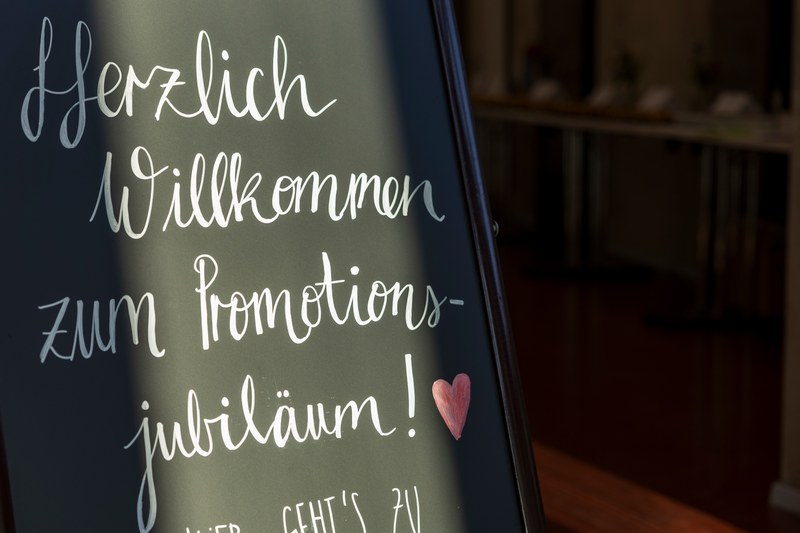 Herzlich
Willkommen
zum Promotions-
jubiläum!
HIER GEHT'S ZU